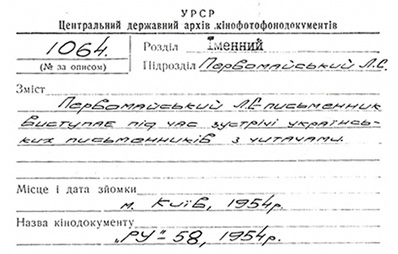 УРСР
Центральний державний архів кінофотофонодокументів
1064.
(№ за описом)
Розділ Іменний
Підрозділ Первомайський Л.С.
Зміст
Первомайський Л.С. письменник
виступає під час зустрічі українсь-
ких письменників з читачами.
Місце і дата зйомки
м. Київ, 1954р.
Назва кінодокументу
„РУ"-58, 1954р.